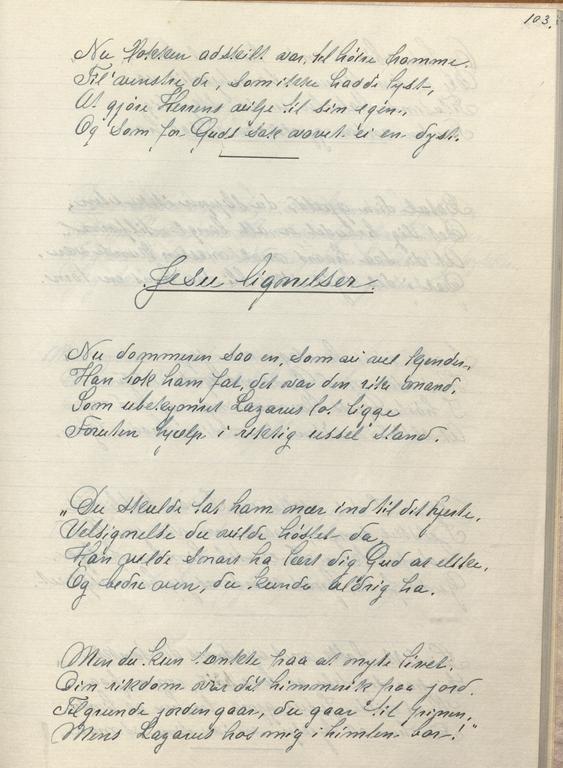 103.
Nu flokken adskilt var, til høire komme
Til venstre de, som ikke hadde lyst,
At gjøre Herrens vilje til sin egen,
Og som for Guds sak vovet ei en dyst.
Jesu lignelser.
Nu dommeren saa en, som vi vel kjender,
Han tok ham fat, det var den rike mand,
Som ubekymret Lazarus lot ligge
Foruten hjælp i riktig ussel stand.
"Du skulde tat ham nær ind til dit hjerte,
Velsignelse du vilde høstet da,
Han vilde snart ha lært dig Gud at elske,
Og bedre ven, du kunde aldrig ha.
Men du kun tænkte paa at nyte livet,
Din rikdom var dit himmerik paa jord.
Tilgrunde jorden gaar, du gaar til pinen,
Mens Lazarus hos mig i himlen bor!"